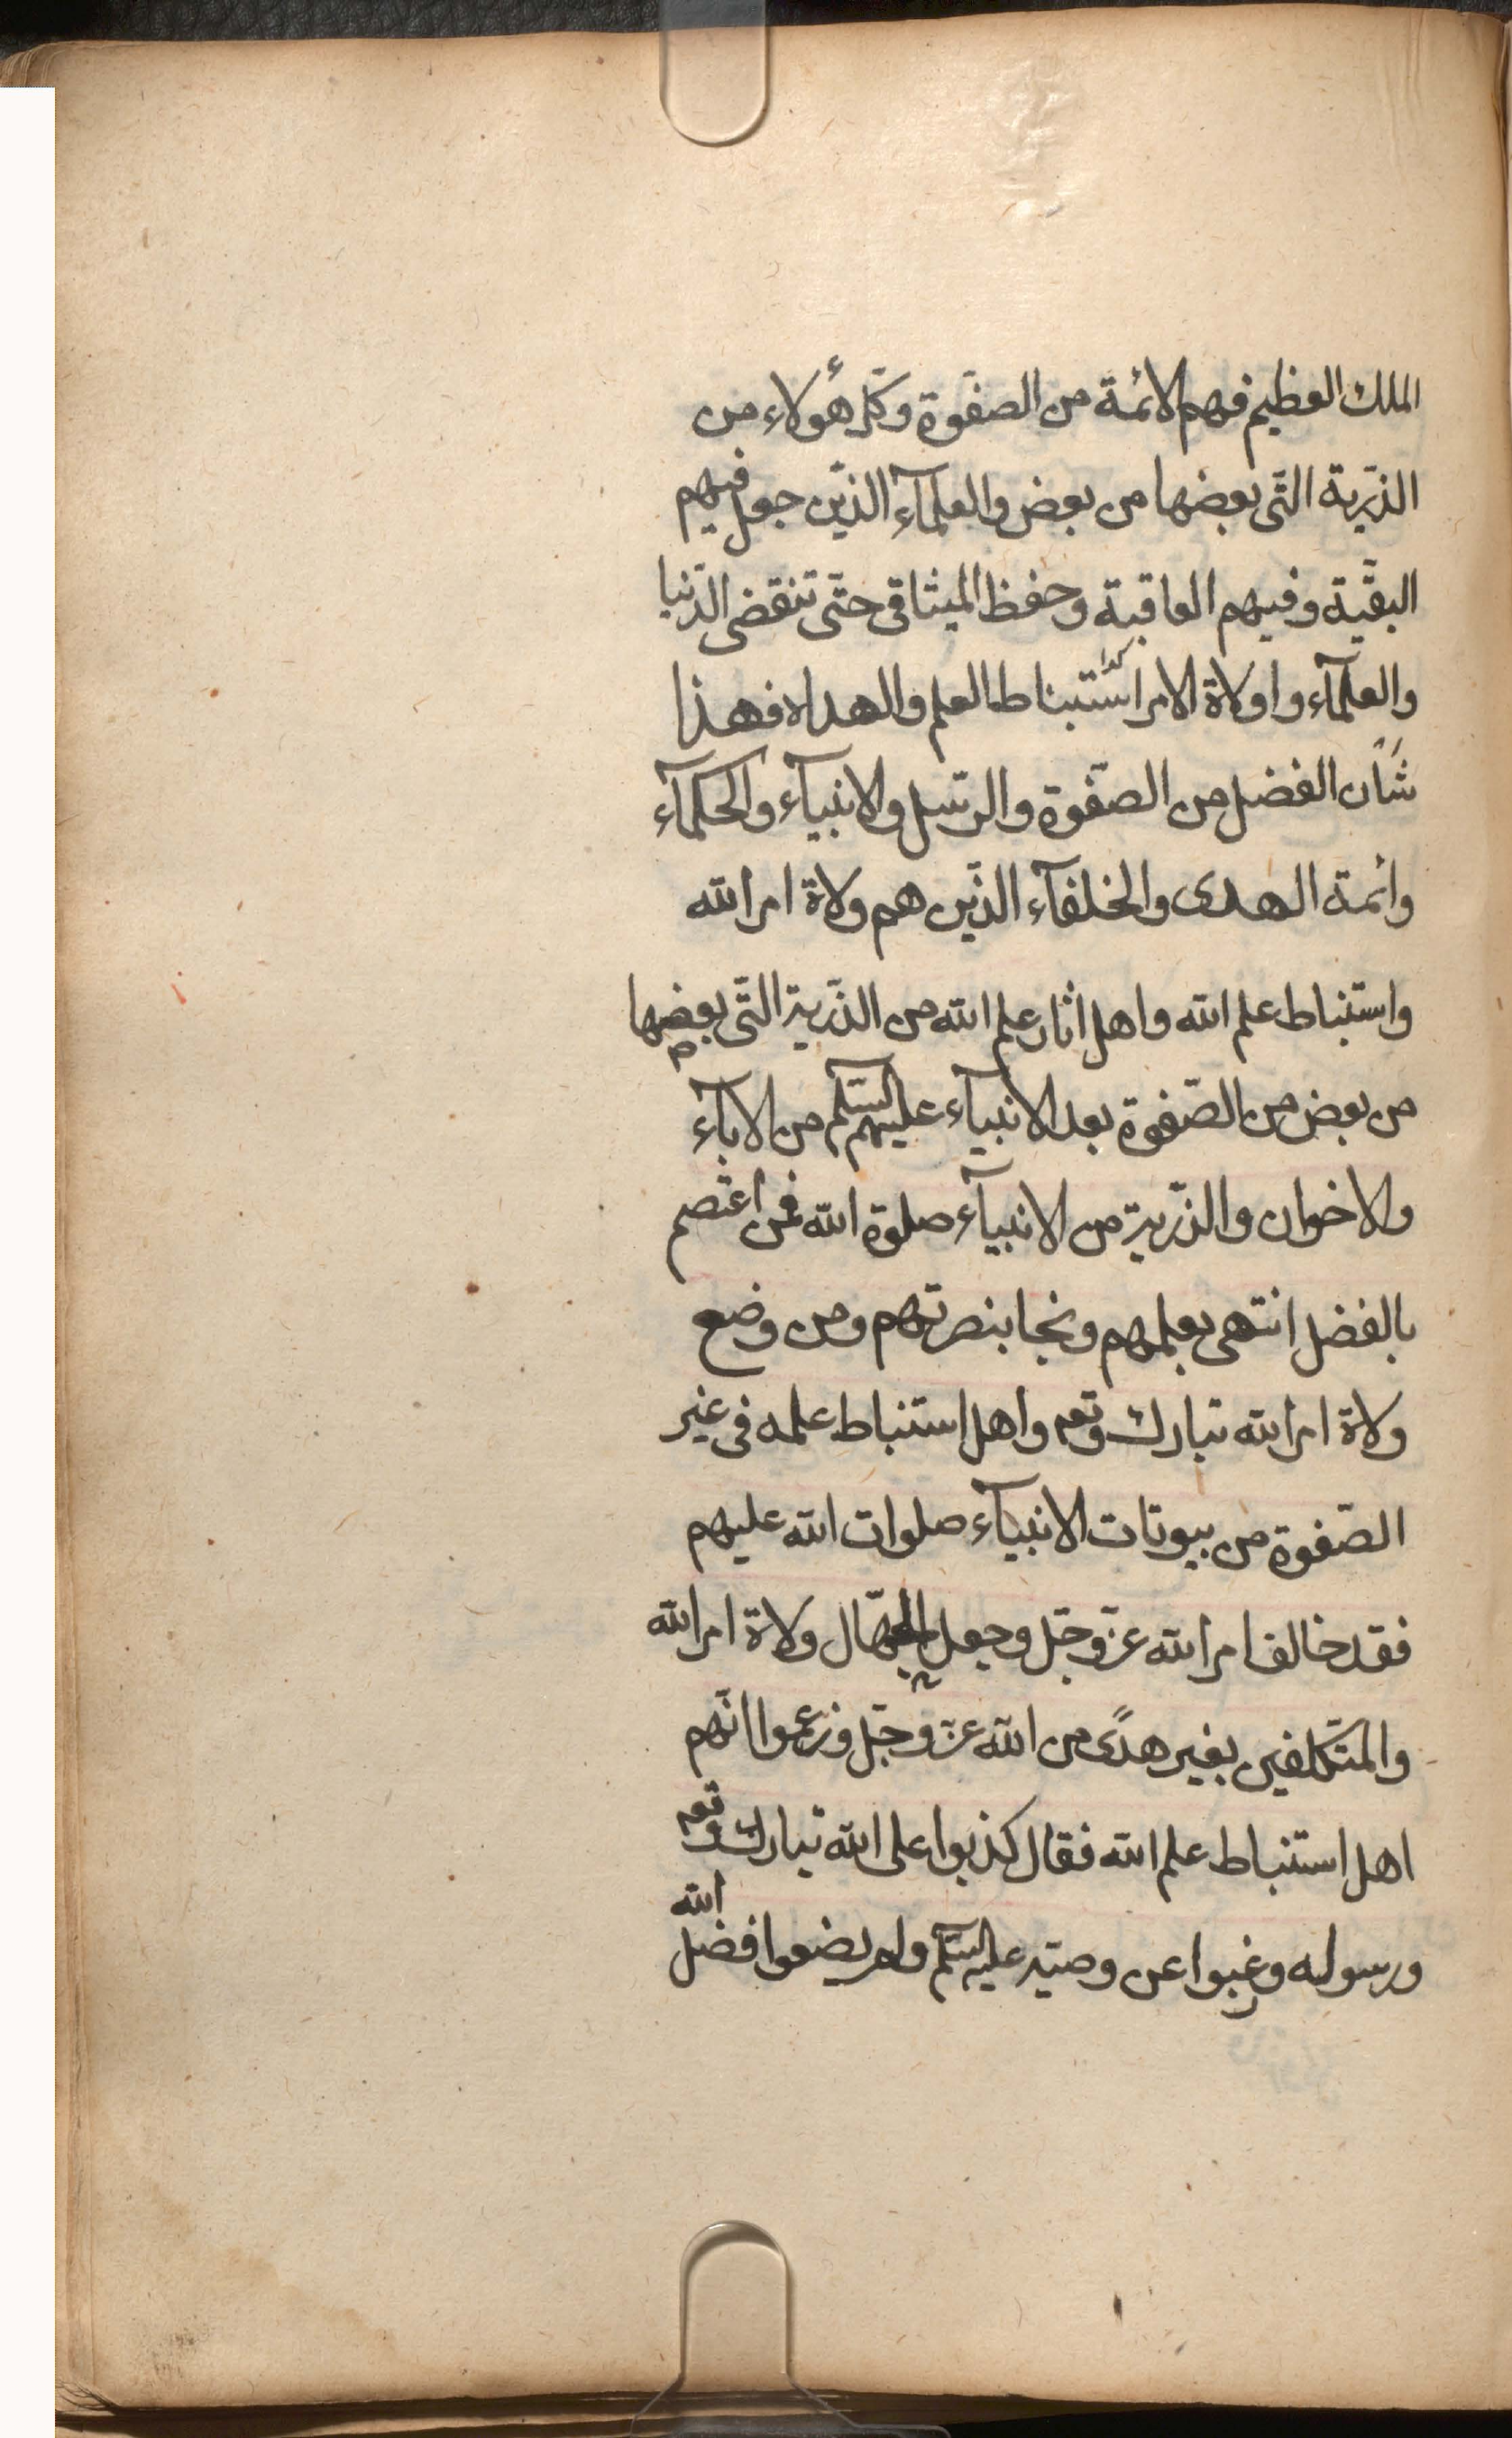 الملك العظيم فهم الائمة من الصفوة وكل هؤلاء من
الذرية التى بعضها من بعض والعلمآء الذين جعل فيهم
البقية وفيهم العاقبة وحفظ الميثاق حتى تنقضى الدنيا
والعلمآء واولاة الامر استنباط العلم والهداة فهذا
شأن الفضل من الصفوة والرسل والانبيآء والحكمآء
وائمة الهدى والخلفآء الذين هم ولاة امر الله
واستنباط علم الله واهل اثار علم الله من الذرية التى بعضها
من بعض من الصفوة بعد الانبيآء عليهم السلم من الابآء
والاخوان والذرية من الانبيآء صلوة الله فمن اعتصم
بالفضل انتهى بعلمهم ونجا بنصرتهم ومن وضع
ولاة امر الله تبارك وتعم واهل استنباط علمه فى غير
الصفوة من بيوتات الانبيآء صلوات الله عليهم
فقد خالف امر الله عز وجل وجعل الجهال ولاة امر الله
والمتكلفين بغير هدًى من الله عز وجل وزعموا انهم
اهل استنباط علم الله فقال كذبوا على الله تبارك وتعم
ورسوله ورغبوا عن وصيه عليه السلم ولم يضعوا فضل الله